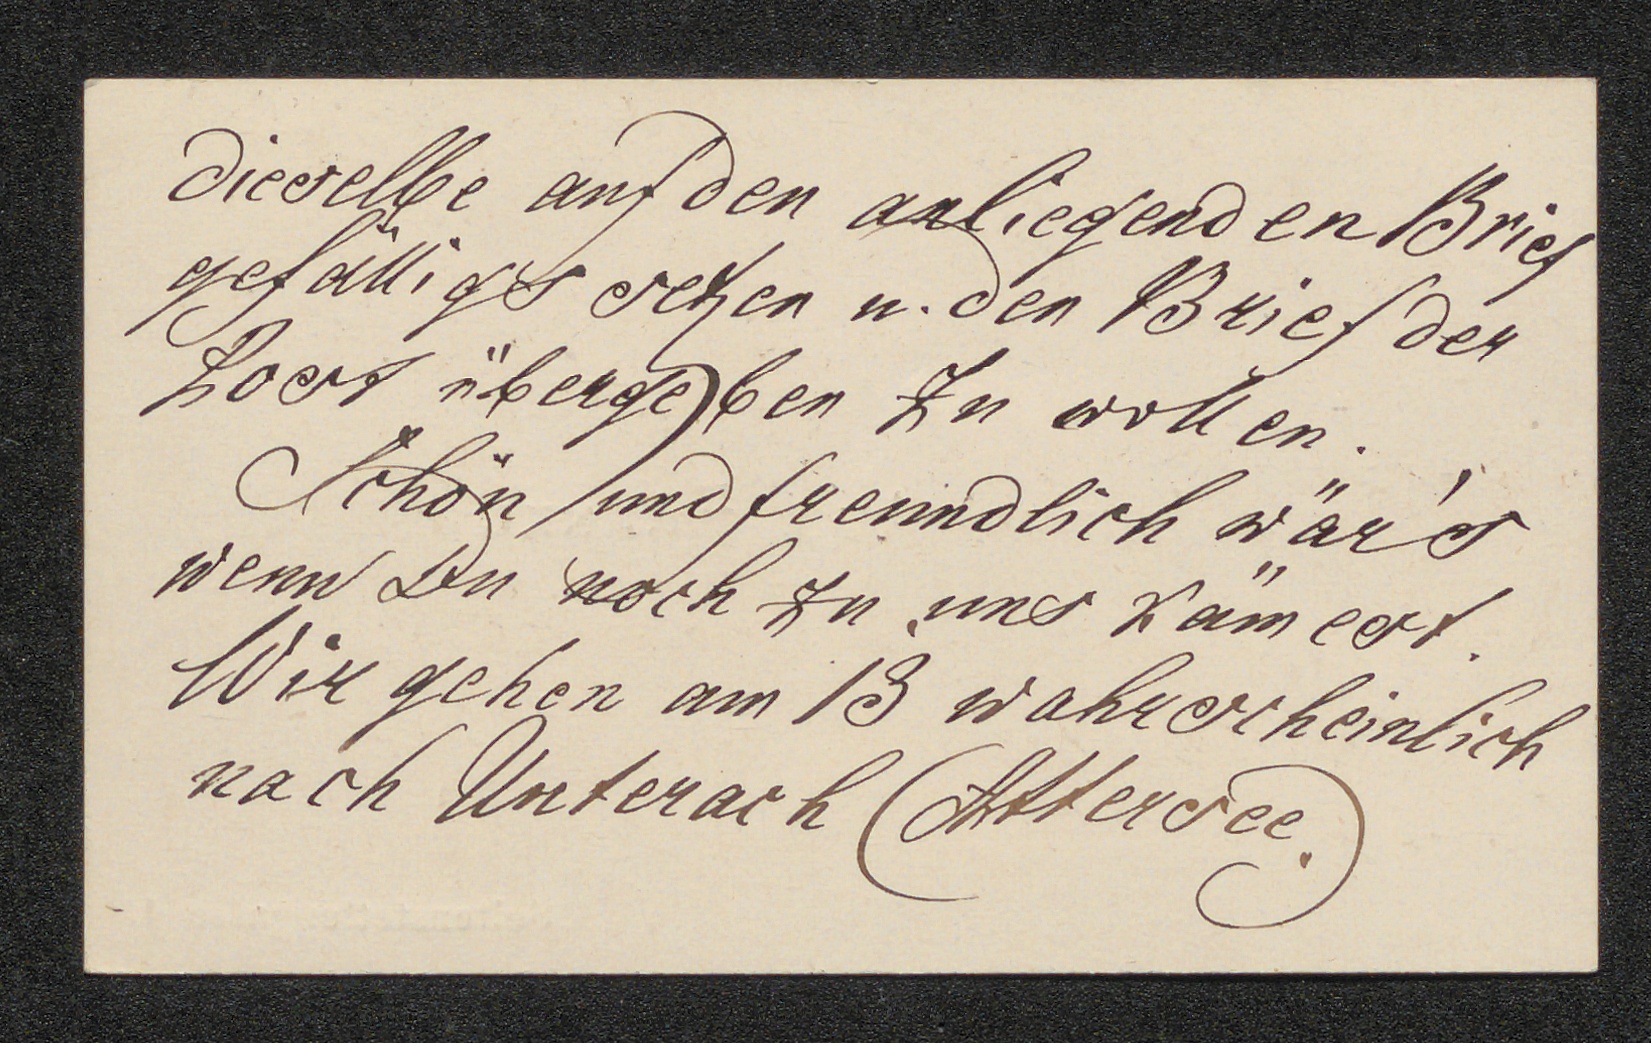 dieselbe auf den anliegenden Brief
gefälligst setzen u. den Brief der
Post übergeben zu wollen.
Schön und freundlich wär's
wenn Du noch zu uns kämest.
Wir gehen am 13 wahrscheinlich
nach Unterach (Attersee.)